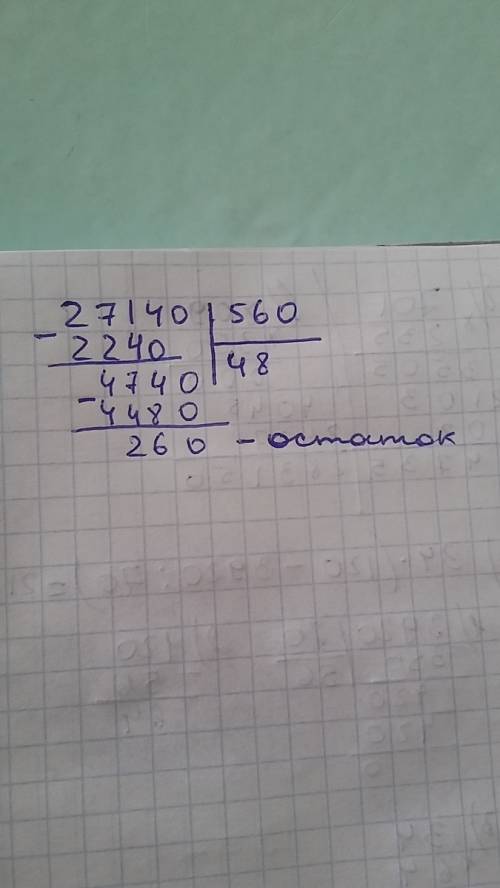 27140 560
- 2240 48
- 4740
4480
260 - остаток